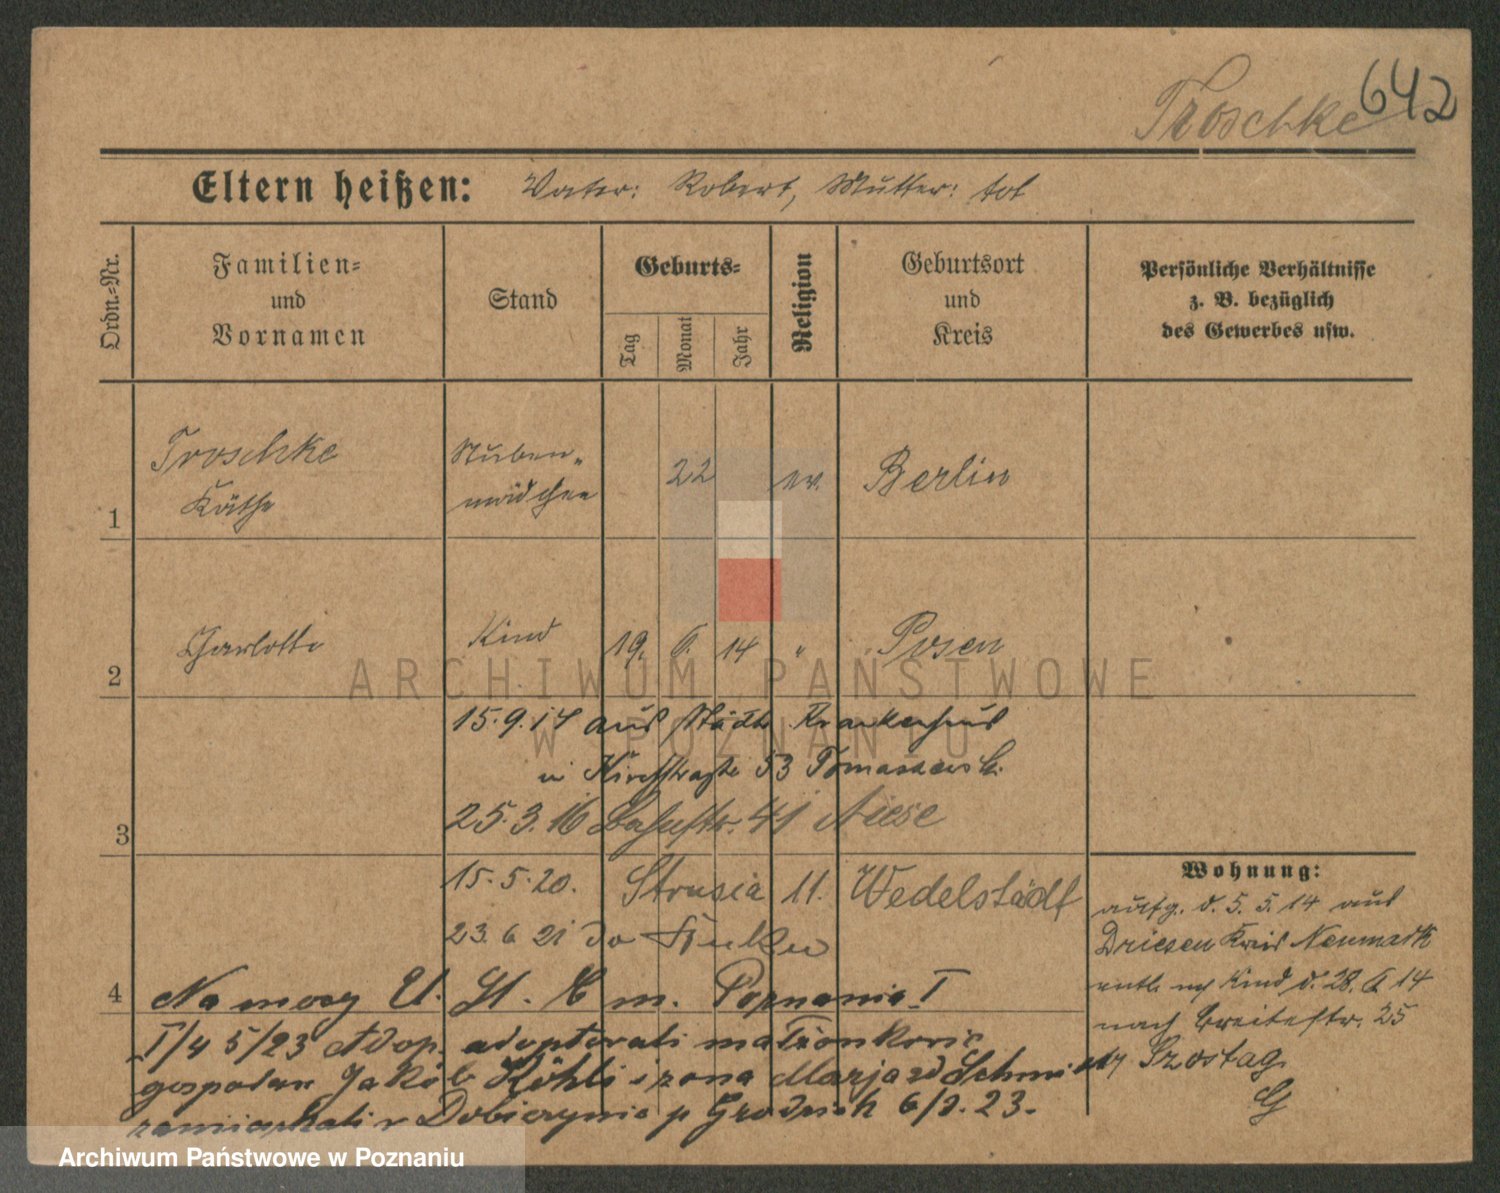 Troschke 642
Eltern heißen: Vater: Robert, Mutter: tot
Ordn.=Nr.
Familien=
und
Vornamen
Stand
Geburts=
Tag
Monat
Jahr
Religion
Geburtsort
und
Kreis
Persönliche Verhältnisse
z. B. bezüglich
des Gewerbes usw.
1 Troschke Stuben- 22 ev. Berlin
Käthe mädchen
2 Charlotte Kind 19. 6. 14 " Posen
ARCHIWUM PAŃSTWOWE
W POZNANIU
15.9.14 aus Städt. Krankenhaus
in Kirchstraße 53 Tomaszewsk.
3 25.3.16 Bahnstr. 41 Niese
15.5.20. Strusia 11. Wedelstädt
23.6.21 do
4 Na mocy U. St. C m. Poznania I
I/4 5/23 Adop. adoptowali małżonkowie
gospodarz Jakób Köhli i żona Marja zd Schmidt
zamieszkali w Dobieżynie p Grodzisk 6/9.23.
Wohnung:
aufg. d. 5. 5. 14 aus
Driesen Kreis Neumark
entl. m Kind d. 28. 6. 14
nach Breitestr. 25
Szostag
G
Archiwum Państwowe w Poznaniu